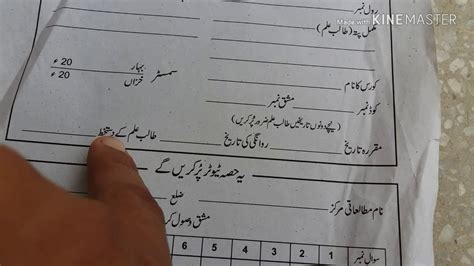 Made with KINEMASTER
رول نمبر
مکمل پتہ (طالب علم)
کورس کا نام سمسٹر بہار 20ء
خزاں 20ء
کوڈ نمبر مشق نمبر
(نیچے دونوں تاریخیں طالب علم ضرور پُر کریں)
مقررہ تاریخ روانگی کی تاریخ طالب علم کے دستخط
یہ حصہ ٹیوٹر پُر کریں گے
نام مطالعاتی مرکز ضلع
مشق وصول کر
سوال نمبر 1 2 3 4 5 6